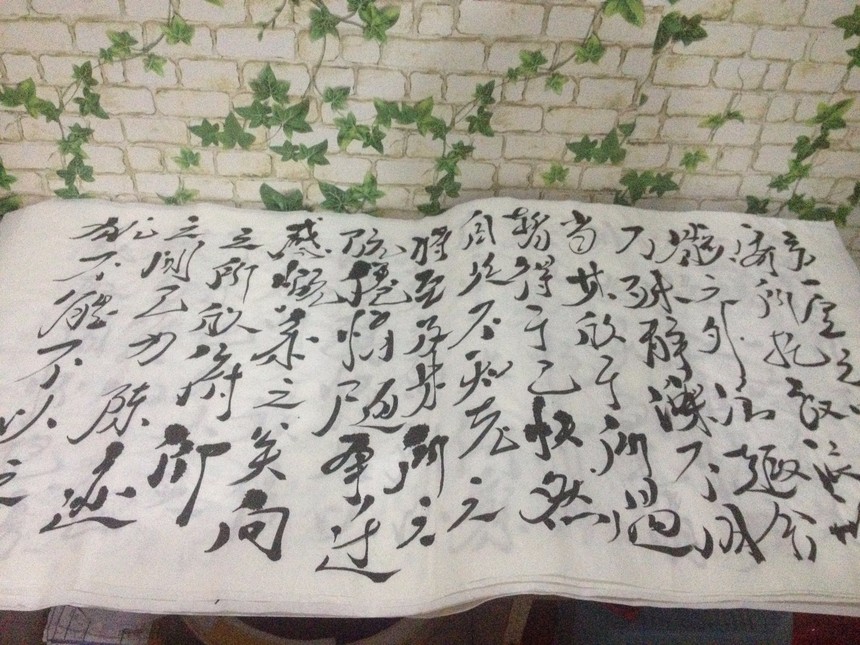 言一室之
寄所托放浪
骸之外雖趣舍
万殊静躁不同
当其欣于所遇
暂得于己快然
自足不知老之
将至及其所之
既倦情随事迁
感慨系之矣向
之所欣俯仰
之间已为陈迹
犹不能不以之